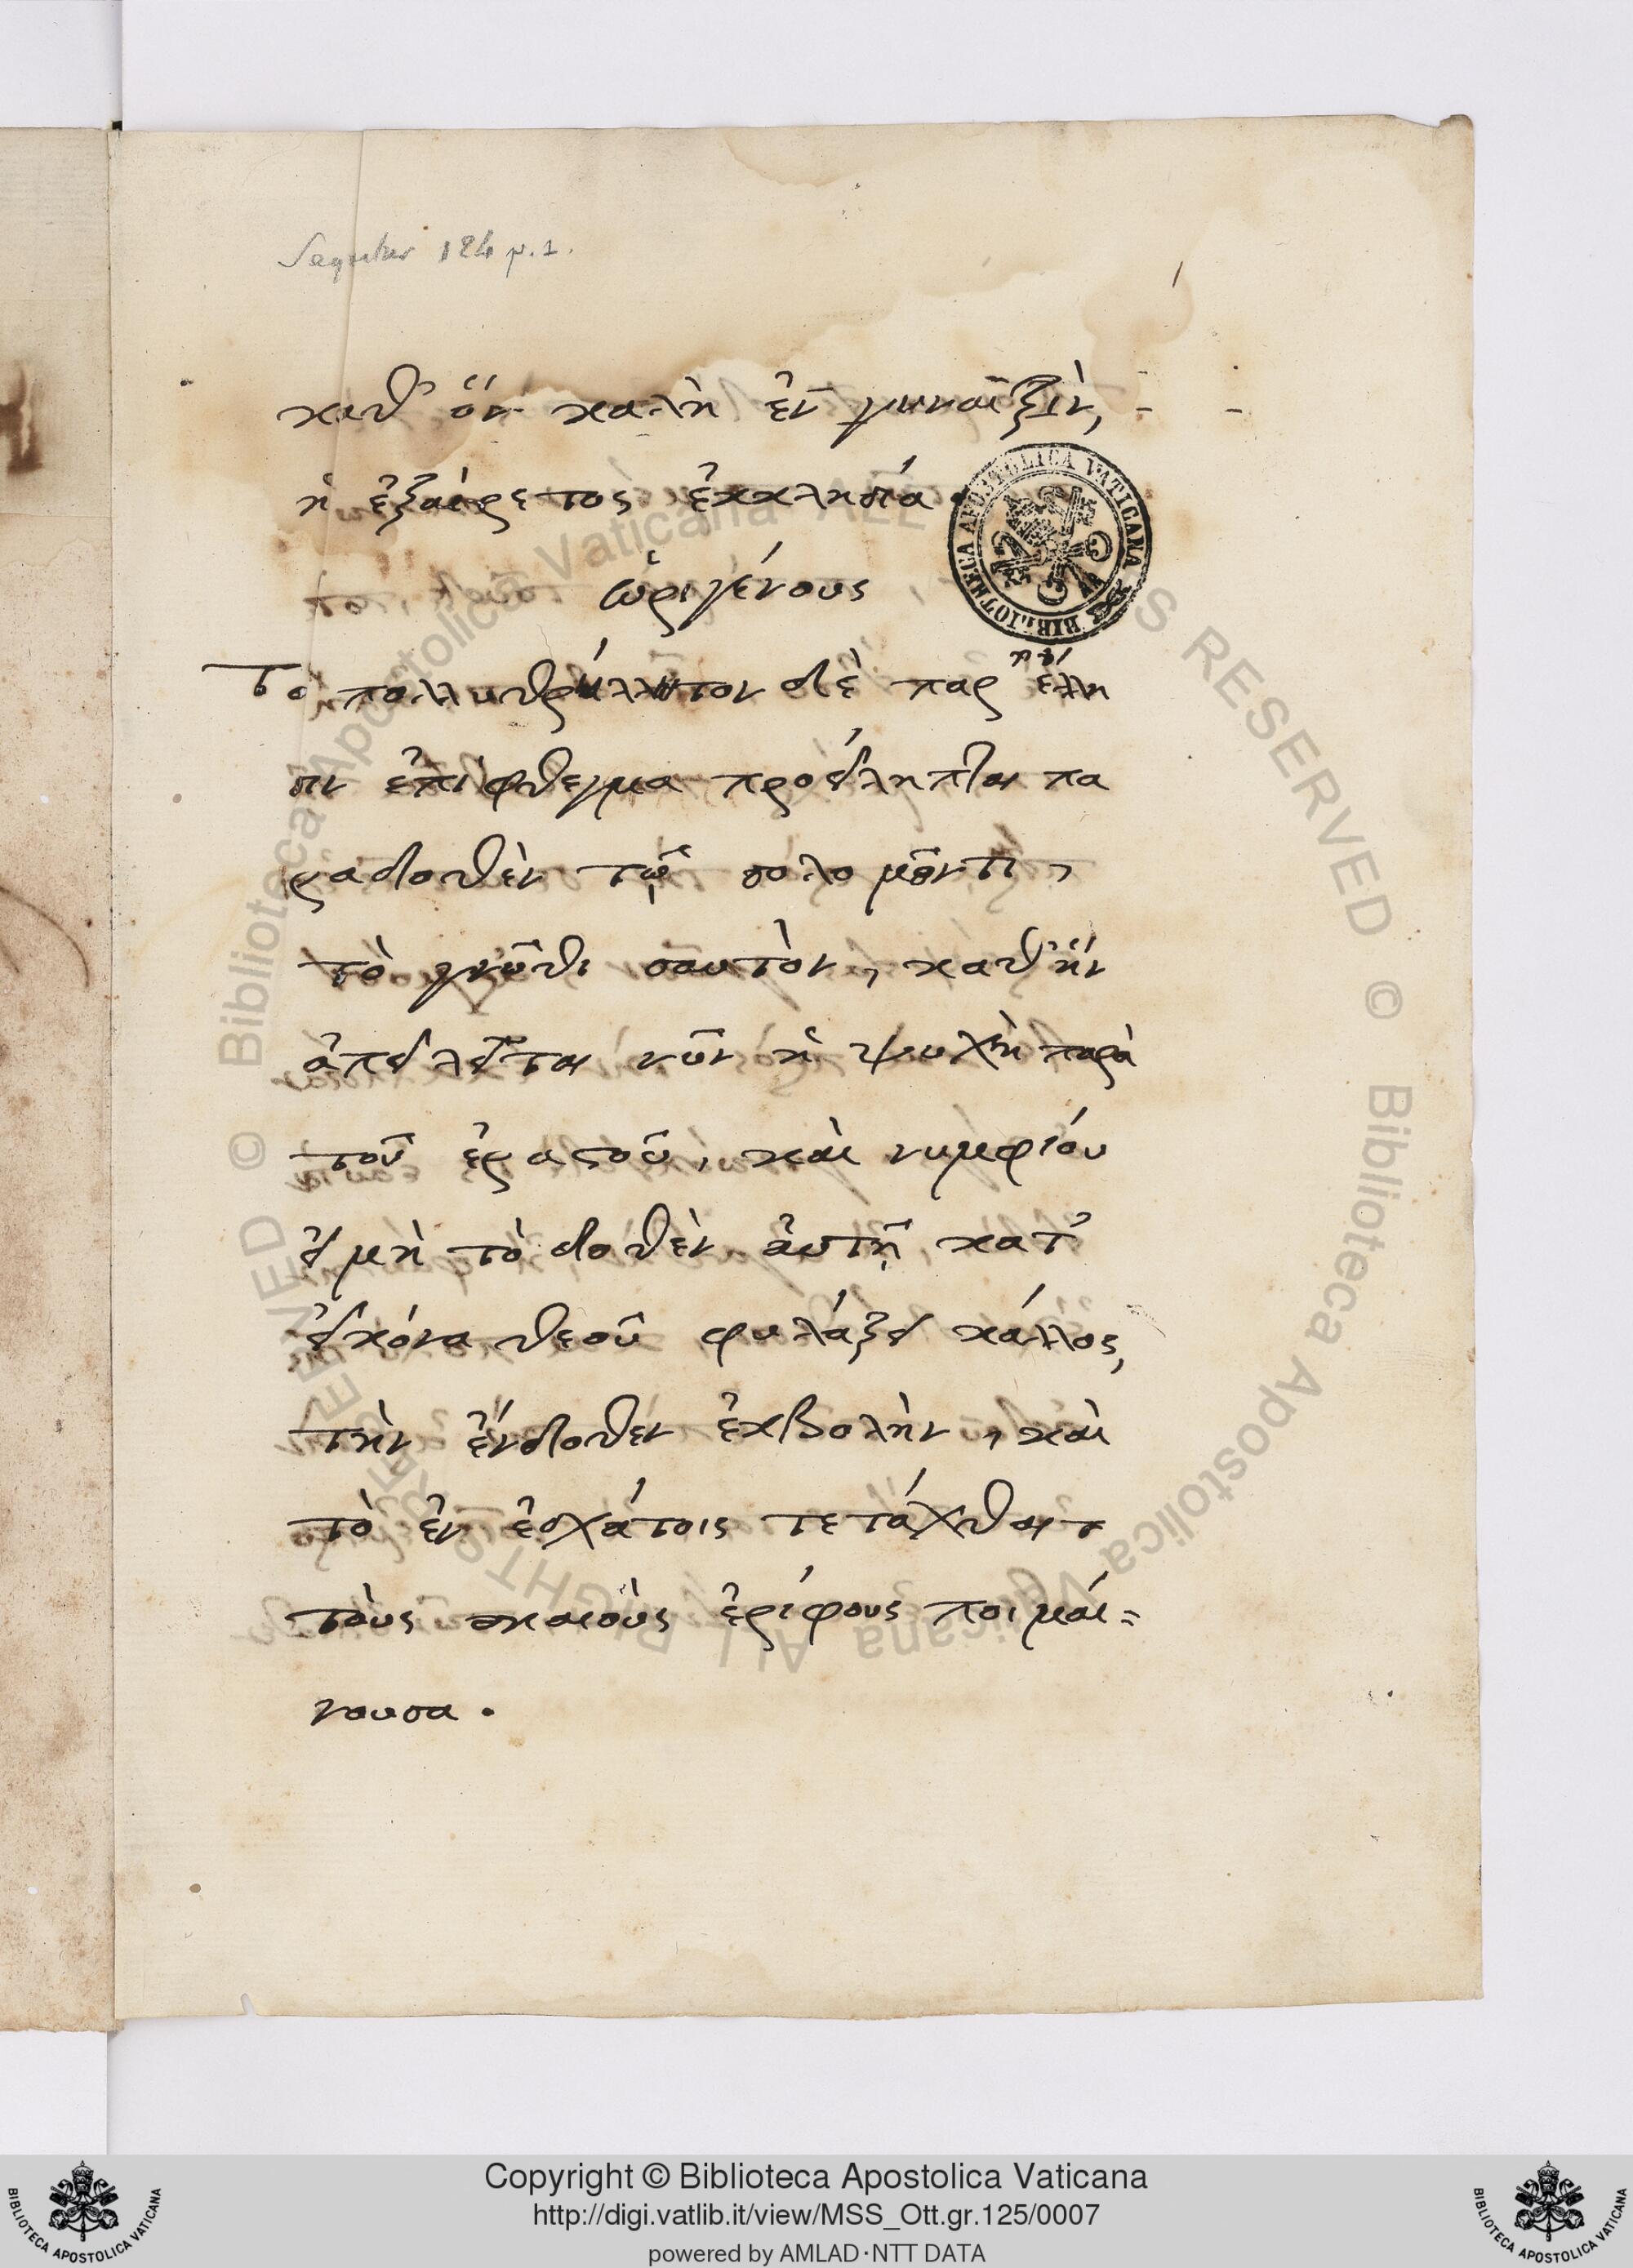 Sequitur 124 p. 1.
1
καθ' ὃν καλὴ ἐν γυναιξὶν,
ἡ ἐξαίρετος ἐκκλησία.
ὠριγένους
Τὸ πολλυθρύλλητον δὲ παρ' ἕλλη
σιν ἐπίφθεγμα προείληπται πα
ραδοθὲν τῷ σολομῶντι,
τὸ γνῶθι σαυτὸν, καθ' ἣν
ἀπειλεῖται νῦν ἡ ψυχὴ παρὰ
τοῦ ἐραστοῦ, καὶ νυμφίου
εἰ μὴ τὸ δοθὲν ἀυτῇ κατ'
εἰκόνα θεοῦ φυλάξει κάλλος,
τὴν ἔνδοθεν ἐκβολὴν, καὶ
τὸ ἐν ἐσχάτοις τετάχθαι
τοὺς σκαιοὺς ἐρίφους ποιμαί=
νουσα.
BIBLIOTHECA APOSTOLICA VATICANA
© Biblioteca Apostolica Vaticana ALL RIGHTS RESERVED © Biblioteca Apostolica Vaticana ALL RIGHTS RESERVED
Copyright © Biblioteca Apostolica Vaticana
http://digi.vatlib.it/view/MSS_Ott.gr.125/0007
powered by AMLAD·NTT DATA
BIBLIOTECA APOSTOLICA VATICANA
BIBLIOTECA APOSTOLICA VATICANA